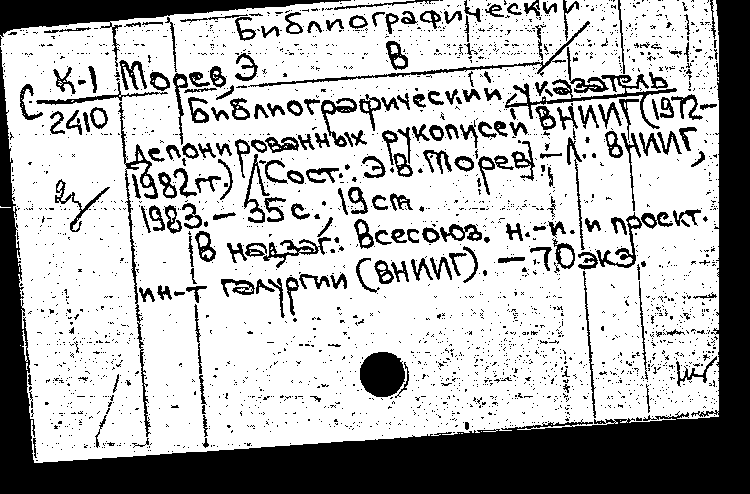 Библиографический
С К-1 Морев, Э. В
2410 Библиографический указатель
депонированных рукописей ВНИИГ (1972-
1982гг.) / [Сост.: Э.В. Морев]. - Л.: ВНИИГ,
1983. - 35 с.; 19 см.
В надзаг.: Всесоюз. н.-и. и проект.
ин-т галургии (ВНИИГ). - 70 экз.